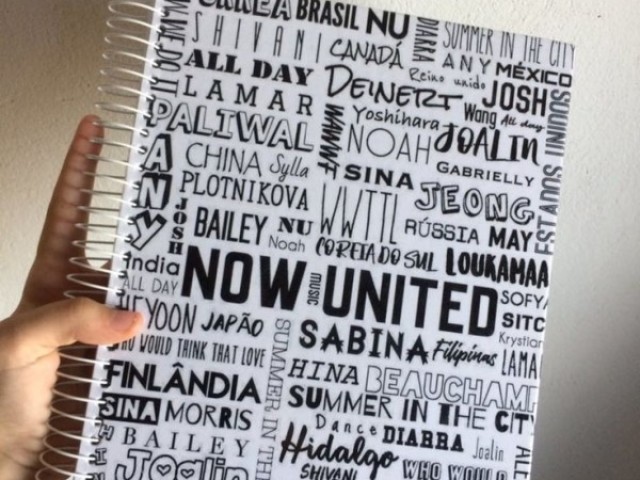 BRASIL NU
DIARRA
SUMMER IN THE CITY
SHIVANI
CANADÁ
ANY MÉXICO
ALL DAY
Reino unido
DEINERT
JOSH
LAMAR
Yoshihara
Wang All day
PALIWAL
WWWF
NOAH
JOALIN
CHINA Sylla
SINA
GABRIELLY
ANY
PLOTNIKOVA
WWTTL
JEONG
JOSH
BAILEY NU
RÚSSIA MAY
Noah
COREIA DO SUL
LOUKAMAA
India
NOW UNITED
music
ALL DAY
SOFYA
HEYOON JAPÃO
SABINA
Filipinas
Krystian
WHO WOULD THINK THAT LOVE
SUMMER IN THE
LAMA
HINA BEAUCHAMP
FINLÂNDIA
SUMMER IN THE CITY
SINA MORRIS
Dance DIARRA Joalin
BAILEY
Hidalgo
Joalin
SHIVANI
WHO WOULD